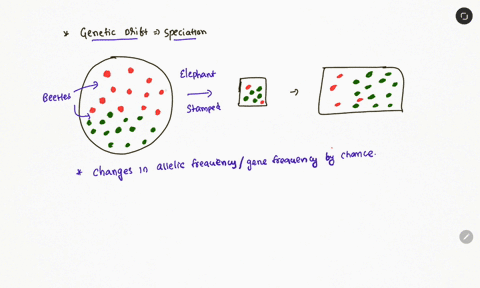 * Genetic Drift ⇒ Speciation
Elephant
Beetles
Stamped
* Changes in allelic frequency/gene frequency by chance.